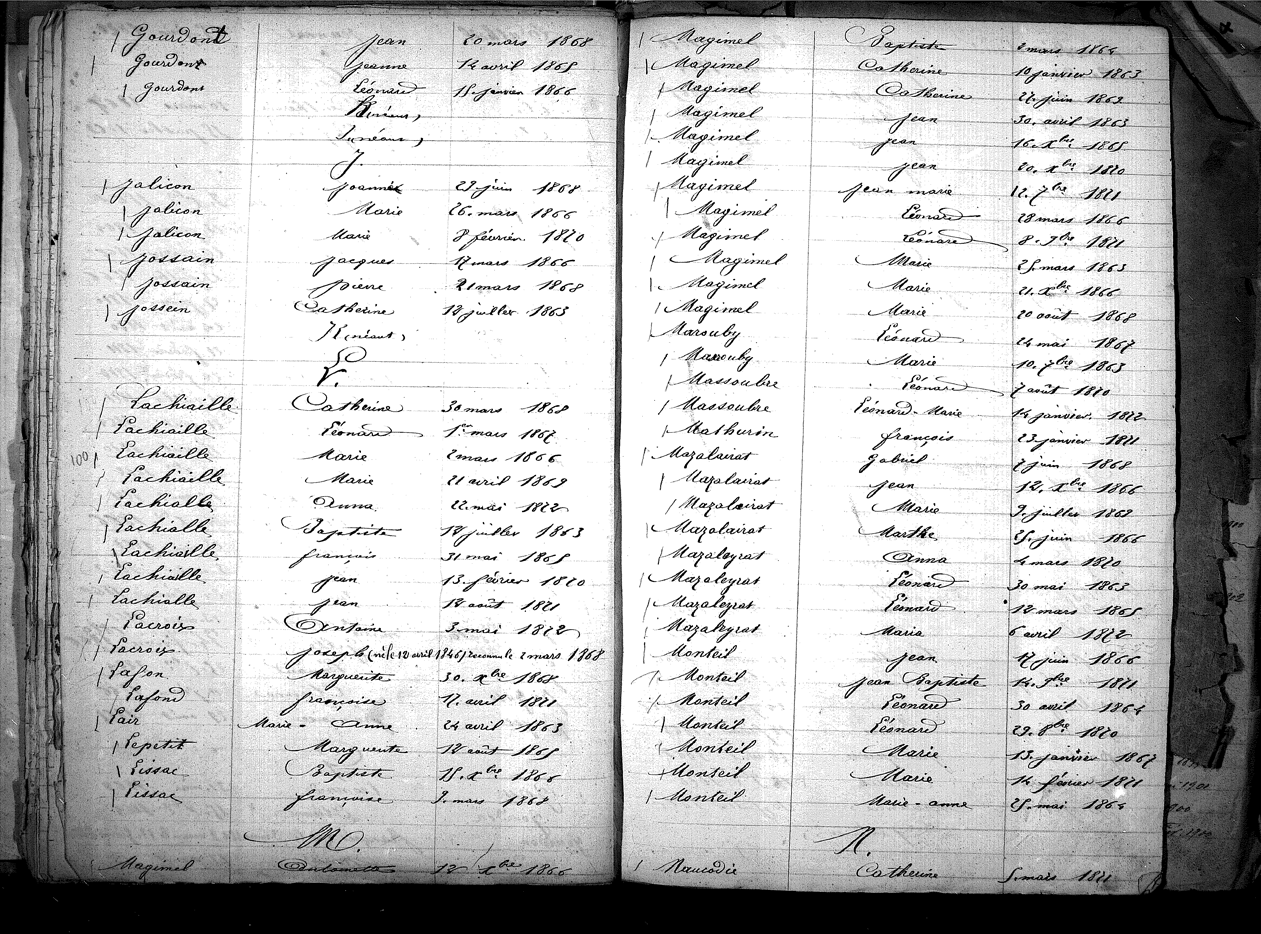 Gourdont Jean 20 mars 1868
Gourdont Jeanne 14 avril 1865
Gourdont Léonard 15. janvier 1866
H (néant)
I (néant)
J.
Jalicon Joanné 23. juin 1868
Jalicon Marie 26. mars 1866
Jalicon Marie 8 février 1870
Jossain Jacques 17 mars 1866
Jossain pierre 21 mars 1868
Jossein Catherine 12 juillet 1863
K (néant)
L.
Lachiaille Catherine 30 mars 1868
Lachiaille Léonard 1er mars 1867
100 Lachiaille Marie 2 mars 1866
Lachiaille Marie 21 avril 1869
Lachialle Anna 22. mai 1872
Lachialle Baptiste 12 juillet 1863
Lachialle françois 31 mai 1865
Lachialle Jean 13. février 1870
Lachialle Jean 12 août 1871
Lacroix Antoine 3 mai 1872
Lacroix Joseph (né le 12 avril 1846) reconnu le 2 mars 1868
Lafon Marguerite 30. Xbre 1868
Lafond françoise 17. avril 1871
Lair Marie - Anne 24 avril 1863
Lepetit Marguerite 12 août 1865
Lissac Baptiste 15. Xbre 1866
Lissac françoise 3. mars 1868
M.
Magimel Antoinette 12 Xbre 1866
Magimel Baptiste 2 mars 1864
Magimel Catherine 10 janvier 1863
Magimel Catherine 27. juin 1869
Magimel Jean 30. avril 1863
Magimel Jean 16. Xbre 1865
Magimel Jean 20. Xbre 1870
Magimel Jean marie 12. 7bre 1871
Magimel Léonard 28 mars 1866
Magimel Léonard 8. 9bre 1871
Magimel Marie 25. mars 1863
Magimel Marie 21. Xbre 1866
Magimel Marie 20 août 1868
Marouby Léonard 24 mai 1867
Marouby Marie 10. 7bre 1863
Massoubre Léonard 7 août 1870
Massoubre Léonard - Marie 14 janvier. 1872
Mathurin françois 23 janvier 1871
Mazalairat Gabriel 7 juin 1868
Mazalairat Jean 12. Xbre 1866
Mazalairat Marie 9. juillet 1868
Mazalairat Marthe 25. juin 1866
Mazaleyrat Anna 4 mars 1870
Mazaleyrat Léonard 30 mai 1863
Mazaleyrat Léonard 12 mars 1865
Mazaleyrat Maria 6 avril 1872
Monteil Jean 17 juin 1866
Monteil Jean Baptiste 14. 9bre 1871
Monteil Léonard 30 avril 1864
Monteil Léonard 29. 8bre 1870
Monteil Marie 13. janvier 1867
Monteil Marie 14 février 1871
Monteil Marie - anne 25. mai 1864
N.
Naucodie Catherine 5. mars 1871